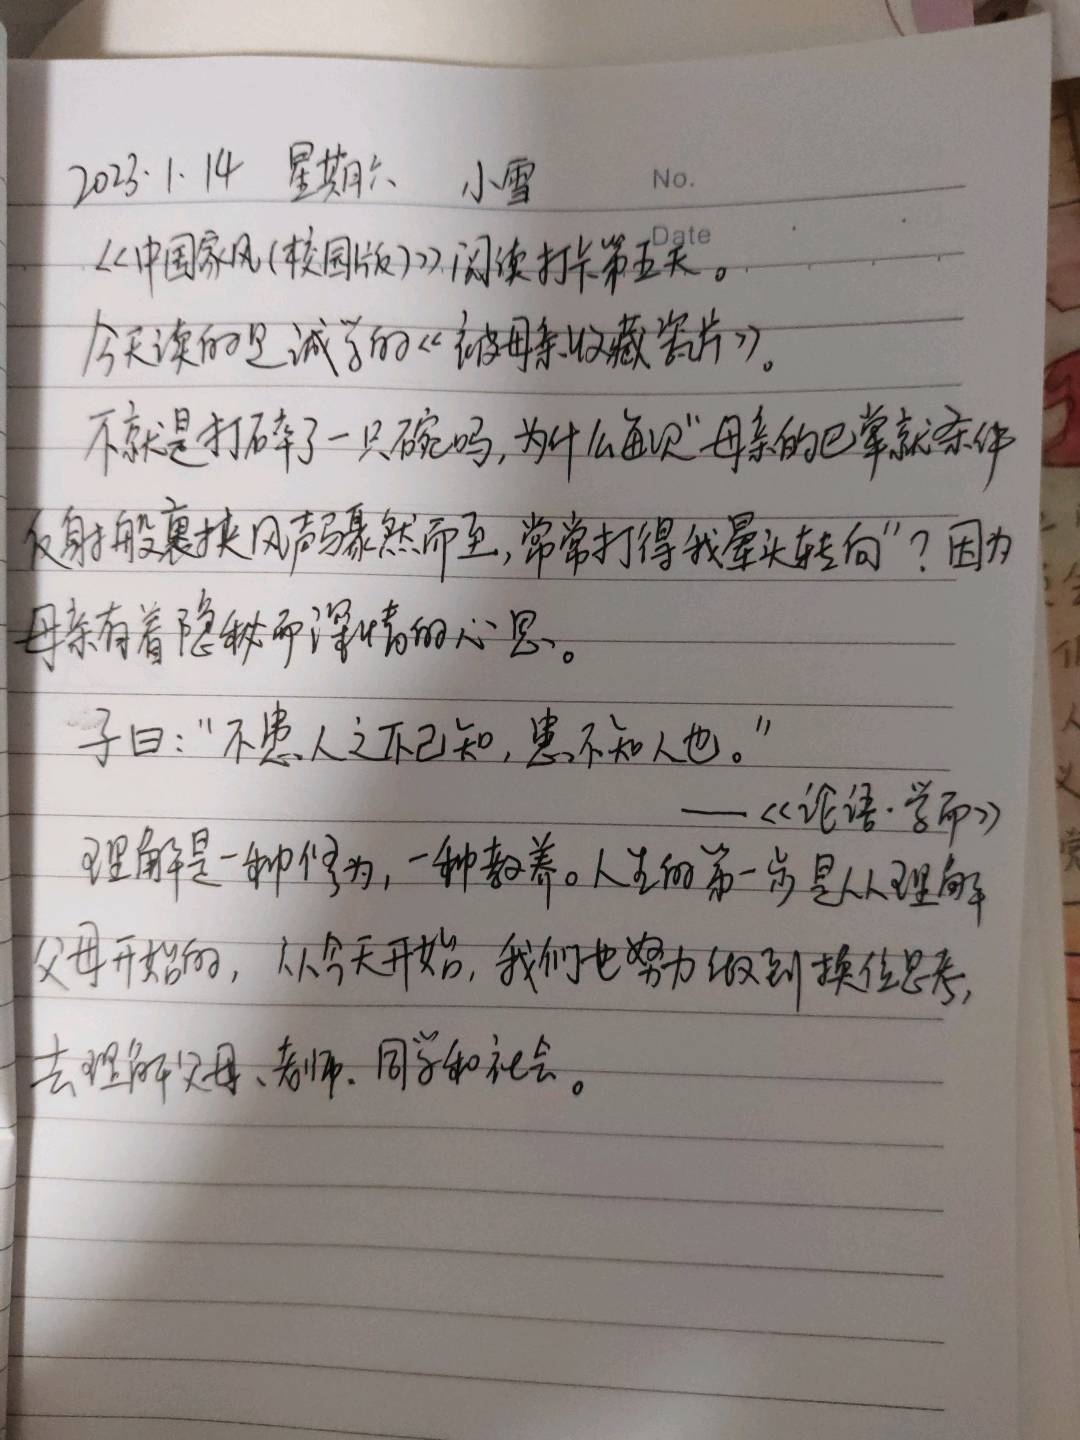 2023.1.14 星期六 小雪
No.
Date
《中国家风(校园版)》阅读打卡第五天。
今天读的是诚学的《被母亲收藏瓷片》。
不就是打碎了一只碗吗,为什么每次"母亲的巴掌就条件
反射般裹挟风声骤然而至,常常打得我晕头转向"?因为
母亲有着隐秘而深情的心思。
子曰:"不患人之不己知,患不知人也。"
——《论语·学而》
理解是一种修为,一种教养。人生的第一步是从理解
父母开始的,从今天开始,我们也努力做到换位思考,
去理解父母、老师、同学和社会。